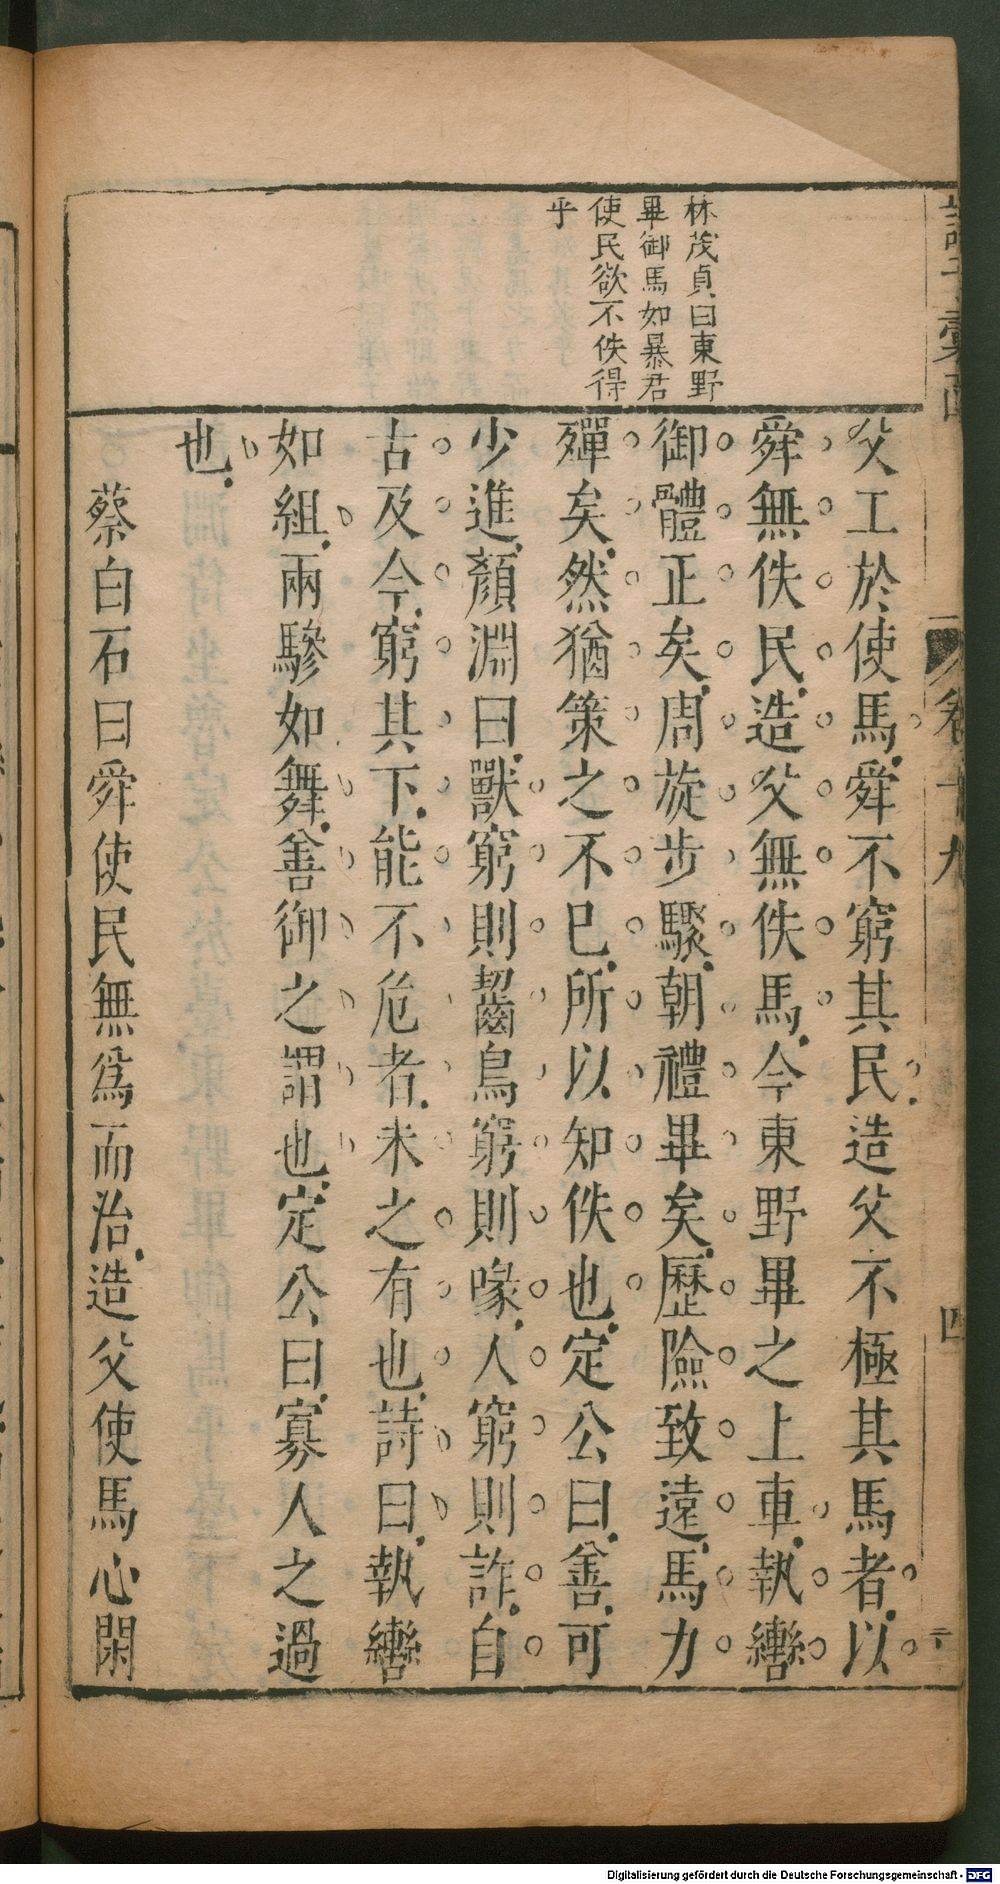 林茂貞曰東野
畢御馬如暴君
使民欲不佚得
乎
父工於使馬舜不窮其民造父不極其馬者以
舜無佚民造父無佚馬今東野畢之上車執轡
御體正矣周旋步驟朝禮畢矣歷險致遠馬力
殫矣然猶策之不已所以知佚也定公曰善可
少進顏淵曰獸窮則齧鳥窮則喙人窮則詐自
古及今窮其下能不危者未之有也詩曰執轡
如組兩驂如舞善御之謂也定公曰寡人之過
也
蔡白石曰舜使民無爲而治造父使馬心閑
卷十九
四
Digitalisierung gefördert durch die Deutsche Forschungsgemeinschaft - DFG